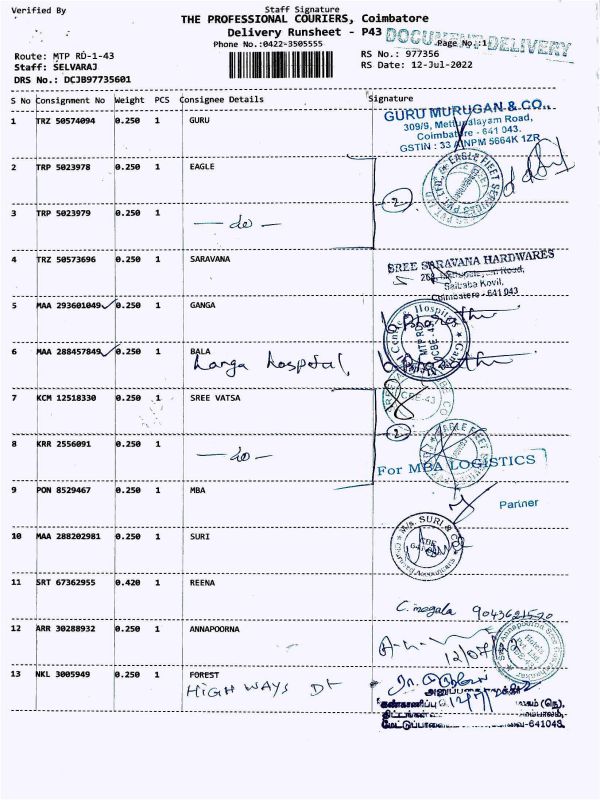 Verified By Staff Signature
THE PROFESSIONAL COURIERS, Coimbatore
Delivery Runsheet - P43 DOCUMENT DELIVERY
Phone No.:0422-3505555 Page No.:1
Route: MTP RD-1-43 RS No.: 977356
Staff: SELVARAJ RS Date: 12-Jul-2022
DRS No.: DCJB97735601
S No Consignment No Weight PCS Consignee Details Signature
1 TRZ 50574094 0.250 1 GURU
GURU MURUGAN & CO.,
309/9, Mettupalayam Road,
Coimbatore - 641 043.
GSTIN : 33 NPM 5664K 1ZR
2 TRP 5023978 0.250 1 EAGLE
EAGLE FLEET SERVICES PVT. LTD.
2
3 TRP 5023979 0.250 1
- do -
4 TRZ 50573696 0.250 1 SARAVANA
SREE SARAVANA HARDWARES
Road,
Saibaba Kovil,
Coimbatore - 641 043
5 MAA 293601049 0.250 1 GANGA
MTP RD
CBE-43
6 MAA 288457849 0.250 1 BALA
hospital,
7 KCM 12518330 0.250 1 SREE VATSA
CBE-43
2
8 KRR 2556091 0.250 1
- do -
EAGLE FLEET
For MBA LOGISTICS
9 PON 8529467 0.250 1 MBA
Partner
10 MAA 288202981 0.250 1 SURI
M/s. SURI & CO
Chartered Accountants
11 SRT 67362955 0.420 1 REENA
9043621520
12 ARR 30288932 0.250 1 ANNAPOORNA
12/07/22
13 NKL 3005949 0.250 1 FOREST
HIGHWAYS Dt
கண்காணிப்பு
-641043.